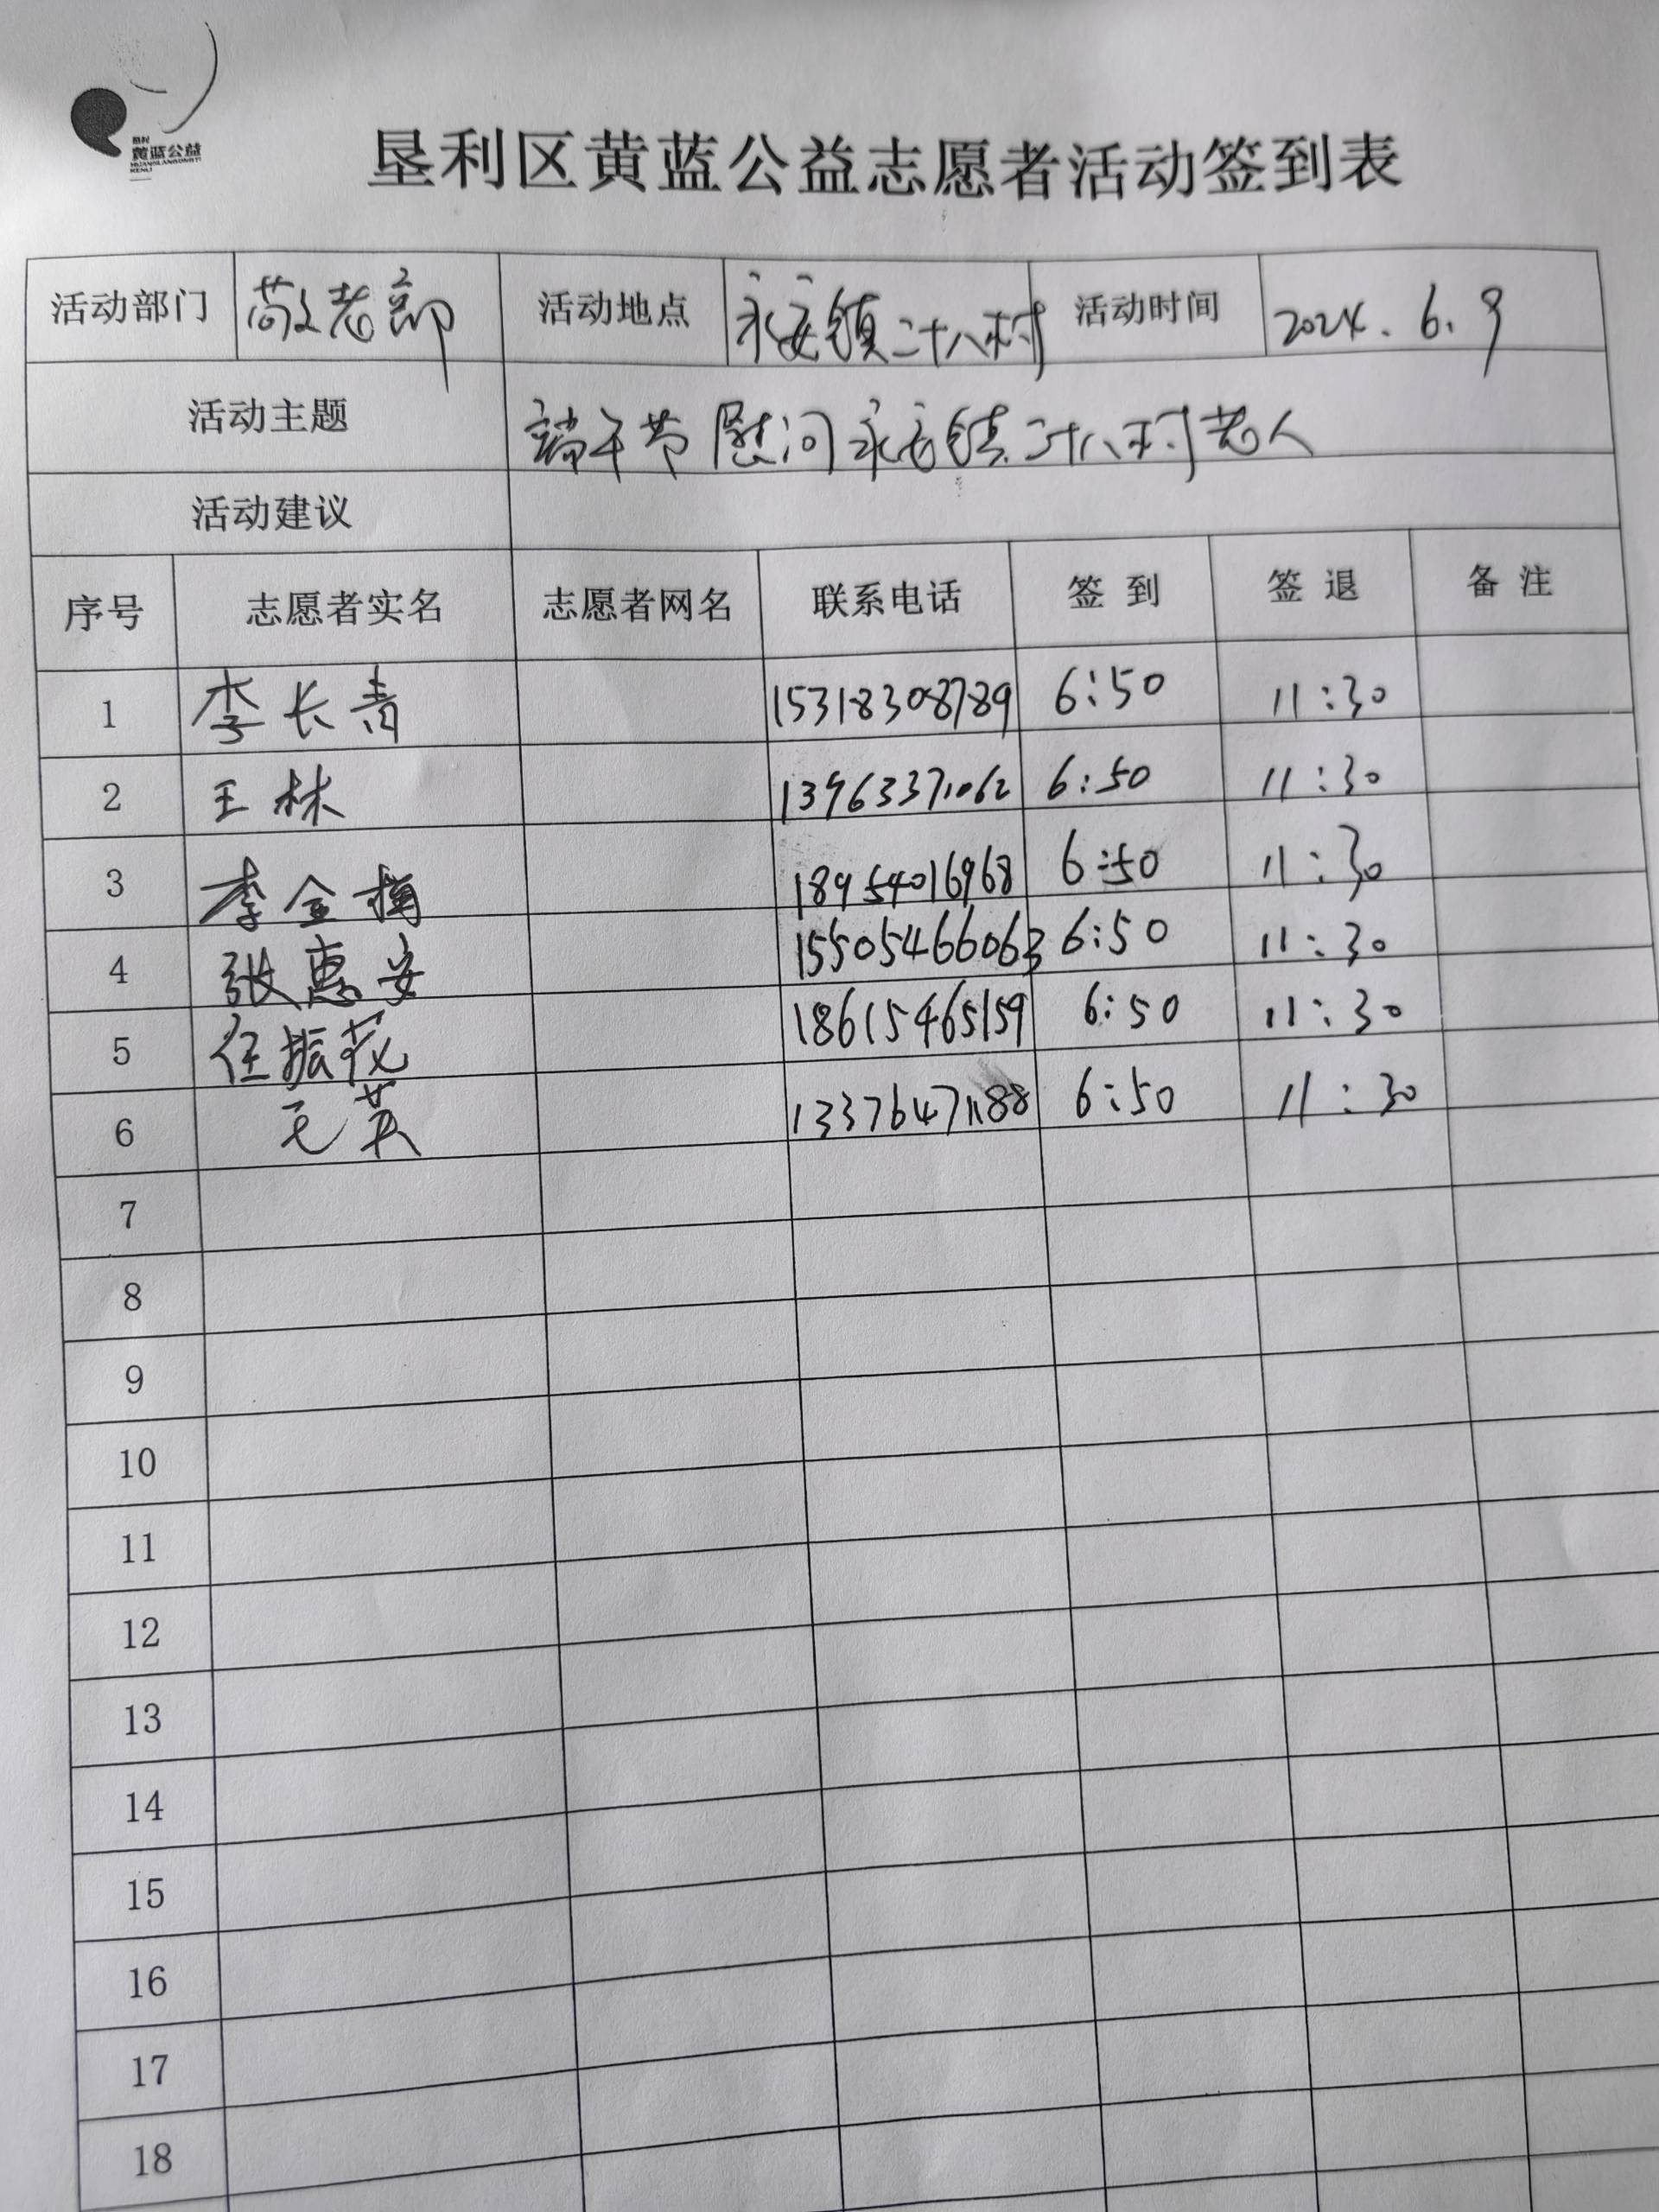 垦利
黄蓝公益
HUANGLANGONGYI
KENLI
垦利区黄蓝公益志愿者活动签到表
活动部门 敬老部 活动地点 永安镇二十八村 活动时间 2024.6.9
活动主题 端午节慰问永安镇二十八村老人
活动建议
序号 志愿者实名 志愿者网名 联系电话 签到 签退 备注
1 李长青 15318308789 6:50 11:30
2 王林 13963371062 6:50 11:30
3 李金梅 18954016968 6:50 11:30
4 张惠安 15505466063 6:50 11:30
5 任振花 18615465159 6:50 11:30
6 王英 13376471188 6:50 11:30
7
8
9
10
11
12
13
14
15
16
17
18